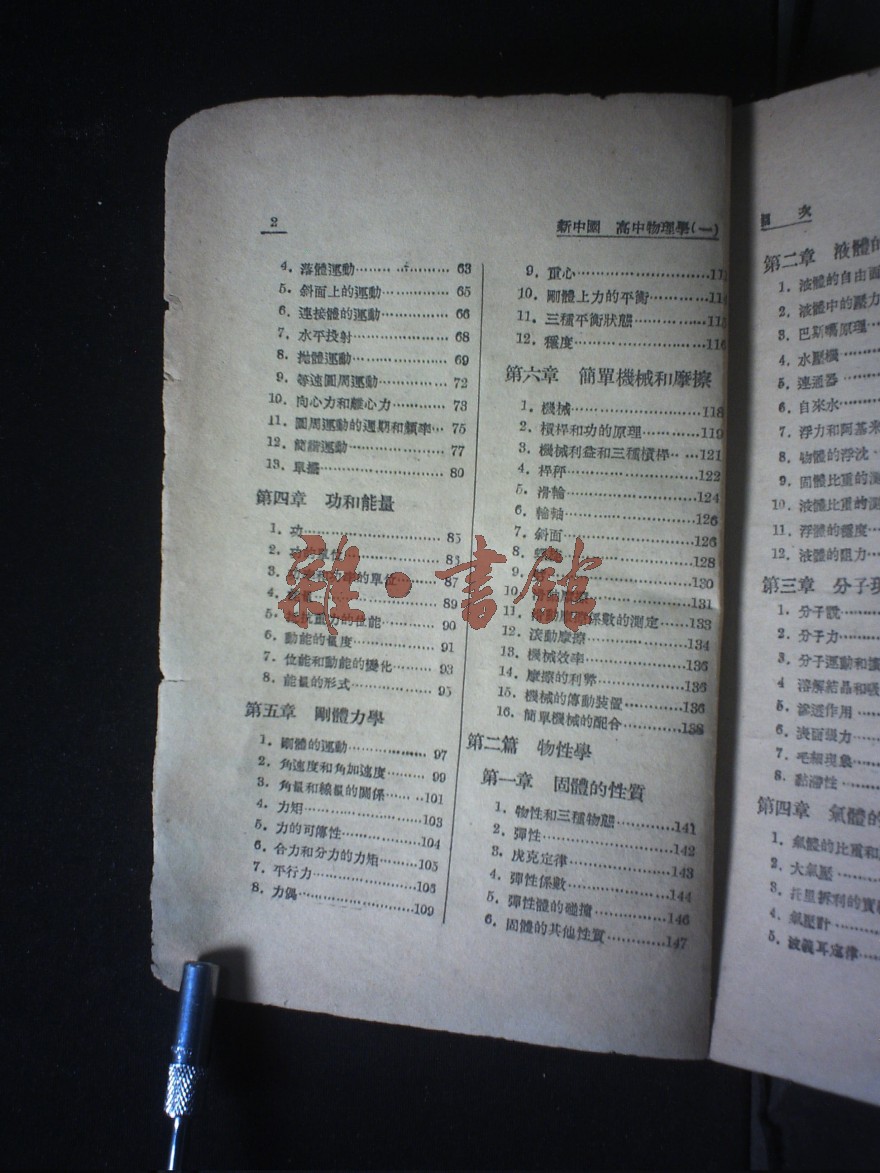 2
新中國 高中物理學(一)
4. 落體運動 63
5. 斜面上的運動 65
6. 連接體的運動 66
7. 水平投射 68
8. 拋體運動 69
9. 等速圓周運動 72
10. 向心力和離心力 73
11. 圓周運動的週期和頻率 75
12. 簡諧運動 77
13. 單擺 80
第四章 功和能量
1. 功
2.
3. 的單位 87
4. 89
5. 的位能 90
6. 動能的量度 91
7. 位能和動能的變化 93
8. 能量的形式 95
第五章 剛體力學
1. 剛體的運動 97
2. 角速度和角加速度 99
3. 角量和線量的關係 101
4. 力矩 103
5. 力的可傳性 104
6. 合力和分力的力矩 105
7. 平行力
8. 力偶 109
9. 重心
10. 剛體上力的平衡
11. 三種平衡狀態
12. 穩度
第六章 簡單機械和摩擦
1. 機械 118
2. 槓桿和功的原理 119
3. 機械利益和三種槓桿 121
4. 桿秤 122
5. 滑輪 124
6. 輪軸 126
7. 斜面 126
8. 128
9. 130
10. 131
11. 係數的測定 133
12. 滾動摩擦 134
13. 機械效率 136
14. 摩擦的利弊 136
15. 機械的傳動裝置 136
16. 簡單機械的配合 138
第二篇 物性學
第一章 固體的性質
1. 物性和三種物態 141
2. 彈性 142
3. 虎克定律 143
4. 彈性係數 144
5. 彈性體的碰撞 146
6. 固體的其他性質 147
目 次
第二章 液體的
1. 液體的自由面
2. 液體中的壓力
3. 巴斯噶原理
4. 水壓機
5. 連通器
6. 自來水
7. 浮力和阿基米
8. 物體的浮沈
9. 固體比重的測
10. 液體比重的測
11. 浮體的穩度
12. 液體的阻力
第三章 分子現
1. 分子說
2. 分子力
3. 分子運動和
4 溶解結晶和吸
5. 滲透作用
6. 表面張力
7. 毛細現象
8. 黏滯性
第四章 氣體的
1. 氣體的比重和
2. 大氣壓
3. 托里拆利的實
4. 氣壓計
5. 波義耳定律
雜·書館